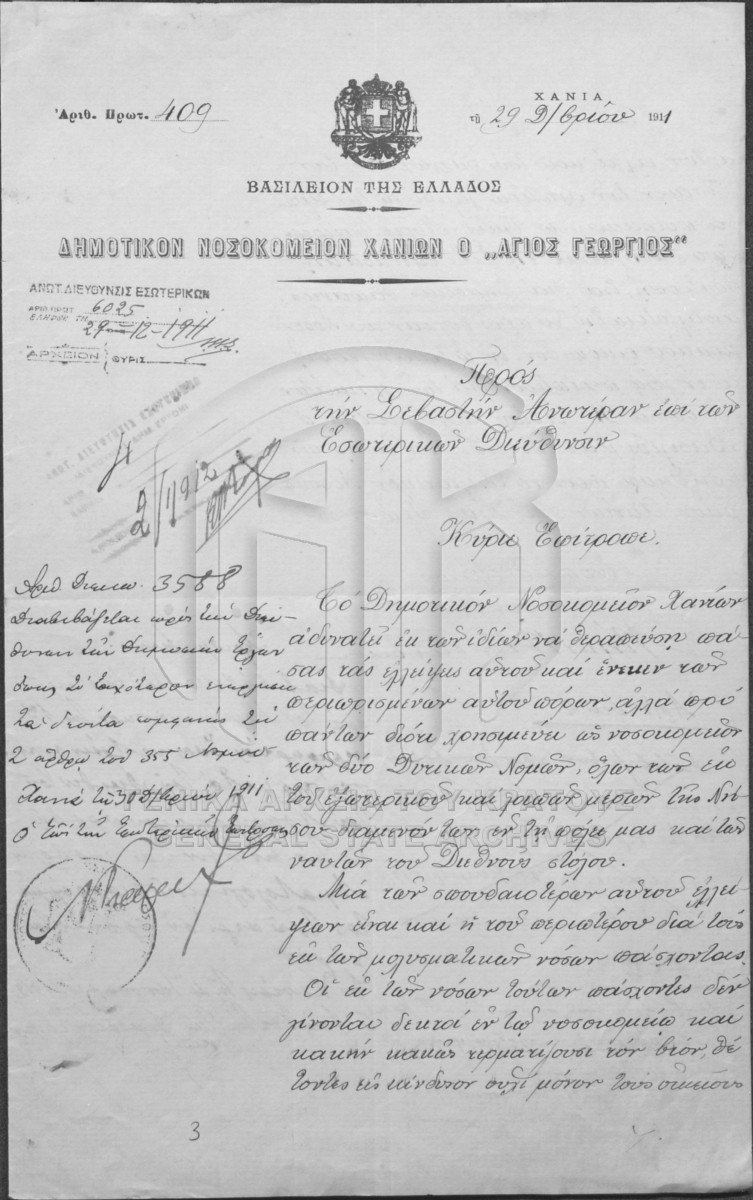 Ἀριθ. Πρωτ. 409
ΧΑΝΙΑ
τῇ 29 Δ/βρίου 1911
ΒΑΣΙΛΕΙΟΝ ΤΗΣ ΕΛΛΑΔΟΣ
ΔΗΜΟΤΙΚΟΝ ΝΟΣΟΚΟΜΕΙΟΝ ΧΑΝΙΩΝ Ο „ΑΓΙΟΣ ΓΕΩΡΓΙΟΣ"
ΑΝΩΤ. ΔΙΕΥΘΥΝΣΙΣ ΕΣΩΤΕΡΙΚΩΝ
ΑΡΙΘ. ΠΡΩΤ. 6025
ΕΛΗΦΘΗ ΤΗ 29-12-1911
ΑΡΧΕΙΟΝ ΘΥΡΙΣ
Πρός
τήν Σεβαστήν Ἀνωτέραν ἐπί τῶν
Ἐσωτερικῶν Διεύθυνσιν
2/1/912
Κύριε Ἐπίτροπε.
Τό Δημοτικόν Νοσοκομεῖον Χανίων
ἀδυνατεῖ ἐκ τῶν ἰδίων νά θεραπεύσῃ πά-
σας τάς ἐλλείψεις αὐτοῦ καί ἕνεκεν τῶν
περιωρισμένων αὐτοῦ πόρων, ἀλλά πρό
πάντων διότι χρησιμεύει ὡς νοσοκομεῖον
τῶν δύο Δυτικῶν Νομῶν, ὅλων τῶν ἐκ
τοῦ ἐξωτερικοῦ καί λοιπῶν μερῶν τῆς Νή-
σου διαμενόντων ἐν τῇ πόλει μας καί τῶν
ναυτῶν τοῦ Διεθνοῦς στόλου.
Μιά τῶν σπουδαιοτέρων αὐτοῦ ἐλλεί-
ψεων εἶναι καί ἡ τοῦ περιπτέρου διά τούς
ἐκ τῶν μολυσματικῶν νόσων πάσχοντας.
Οἱ ἐκ τῶν νόσων τούτων πάσχοντες δέν
γίνονται δεκτοί ἐν τῷ νοσοκομείῳ καί
κακήν κακῶς τερματίζουσι τόν βίον, θέ-
τοντες εἰς κίνδυνον οὐχί μόνον τούς οἰκείους
Ἀριθ. Διεκπ. 3588
Διαβιβάζεται πρός τήν Διεύ-
θυνσιν τῶν Δημοσίων Ἔργων
ὅπως τό ταχύτερον ἐνεργήσῃ
τά δέοντα συμφώνως τῷ
2 ἄρθρῳ τοῦ 355 Νόμου
Χανιά τῇ 30 Δ/βρίου 1911
Ὁ ἐπί τῶν Ἐσωτερικῶν Ἐπίτροπος
3
ΓΕΝΙΚΑ ΑΡΧΕΙΑ ΤΟΥ ΚΡΑΤΟΥΣ
GENERAL STATE ARCHIVES